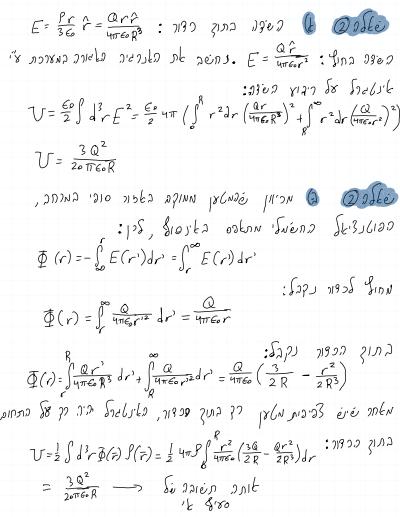 שאלה 2 א השדה בתוך כדור: E = \frac{ρr}{3ε_0} \hat{r} = \frac{Qr\hat{r}}{4πε_0R^3}
השדה בחוץ: E = \frac{Q\hat{r}}{4πε_0r^2}. נחשב את האנרגיה האגורה במערכת ע"י
אינטגרל על ריבוע השדה:
U = \frac{ε_0}{2} ∫ d^3r E^2 = \frac{ε_0}{2} 4π (∫_0^R r^2dr (\frac{Qr}{4πε_0R^3})^2 + ∫_R^∞ r^2dr (\frac{Q}{4πε_0r^2})^2)
U = \frac{3Q^2}{20πε_0R}
שאלה 2 ב מכיוון שהמטען ממוקם באזור סופי במרחב,
הפוטנציאל החשמלי מתאפס באינסוף, לכן:
Φ(r) = -∫_∞^r E(r')dr' = ∫_r^∞ E(r')dr'
מחוץ לכדור נקבל:
Φ(r) = ∫_r^∞ \frac{Q}{4πε_0r'^2} dr' = \frac{Q}{4πε_0r}
בתוך הכדור נקבל:
Φ(r) = ∫_r^R \frac{Qr'}{4πε_0R^3} dr' + ∫_R^∞ \frac{Q}{4πε_0r'^2} dr' = \frac{Q}{4πε_0} (\frac{3}{2R} - \frac{r^2}{2R^3})
מאחר שיש צפיפות מטען רק בתוך הכדור, האינטגרל יהיה רק על התחום
בתוך הכדור: U = \frac{1}{2} ∫ d^3r Φ(r) ρ(r) = \frac{1}{2} 4πρ ∫_0^R \frac{r^2}{4πε_0} (\frac{3Q}{2R} - \frac{Qr^2}{2R^3}) dr
= \frac{3Q^2}{20πε_0R} → אותה תשובה של
סעיף א'